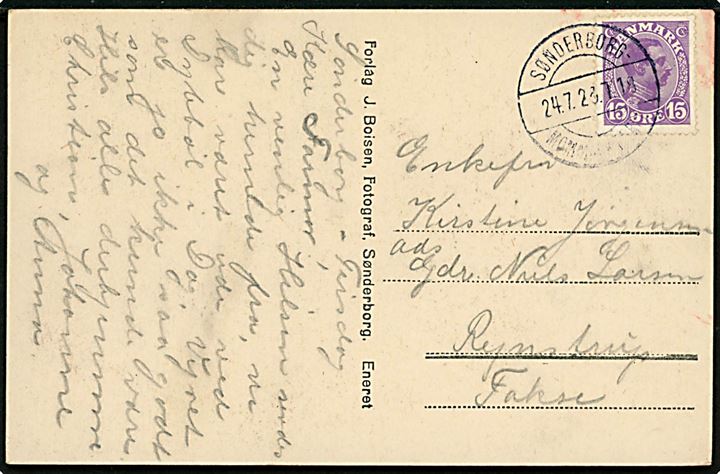 Sønderborg - Tirsdag
Kære Farmor,
En venlig Hilsen sendes
dig herude fra, vi
har været ude ved
Dybbøl i Dag, Vejret
er jo ikke saa godt
som det kunde være
Hils alle derhjemme
Christine, Johanne
og Anna.
Forlag J. Boisen, Fotograf, Sønderborg. Eneret
DANMARK
15 ØRE 15
SØNDERBORG.
24.7.23.7.
Enkefru
Kirstine Jørgensen
ads
Gdr. Niels Larsen
Rejnstrup
Fakse